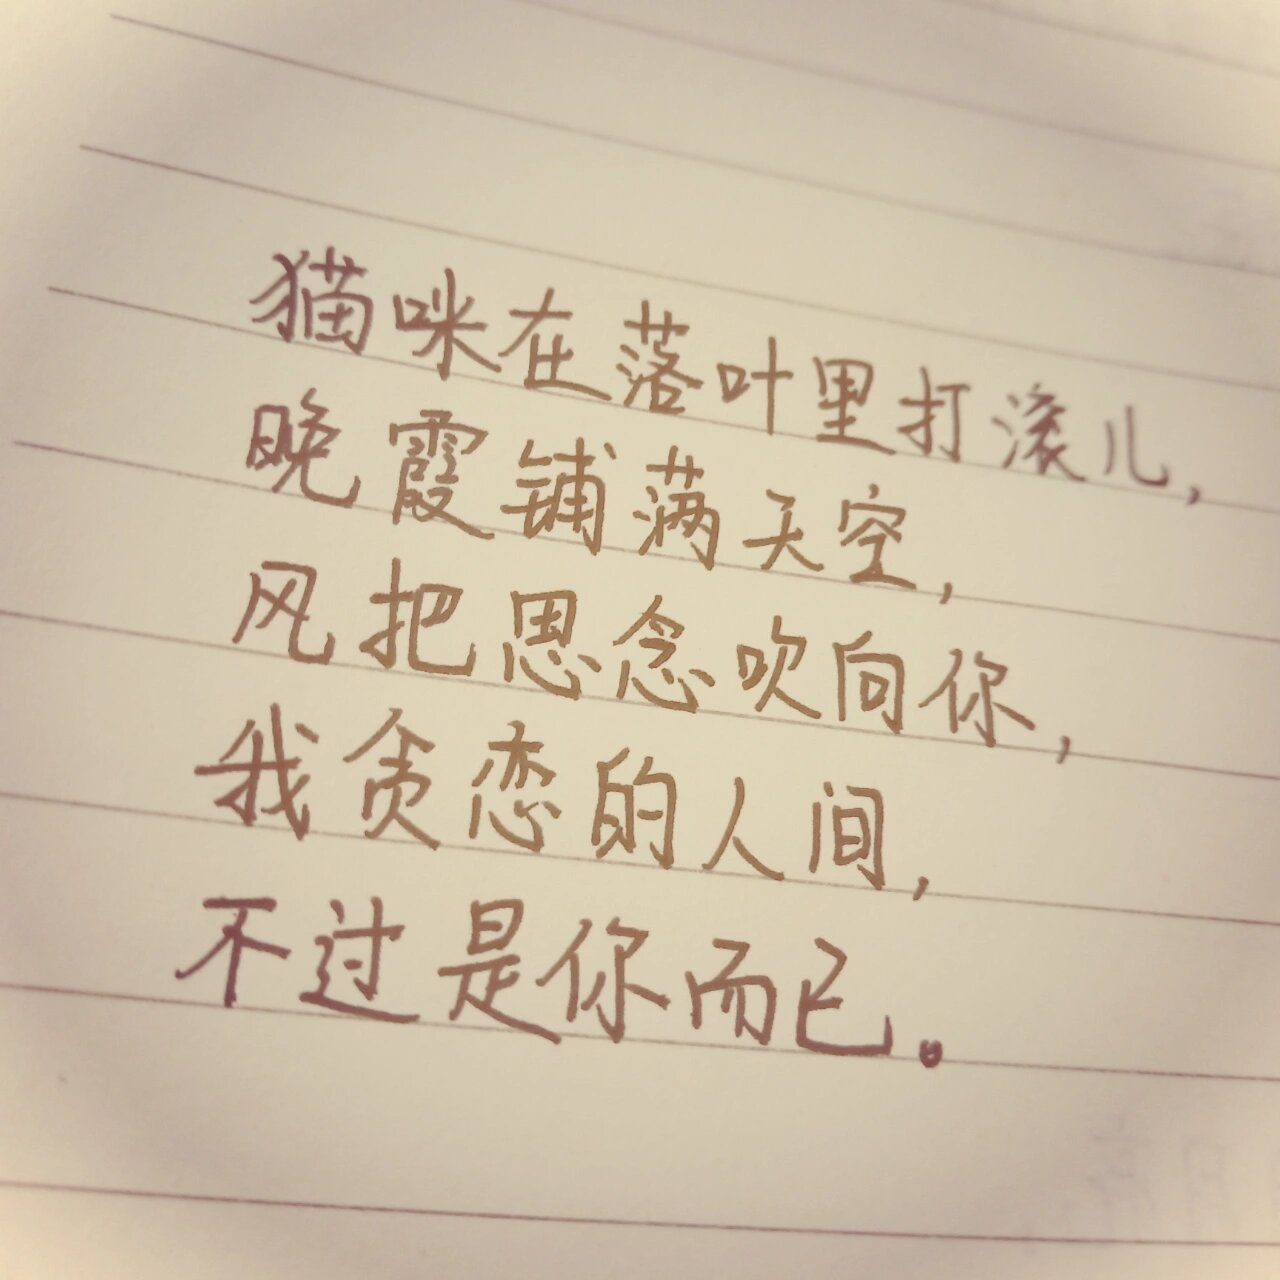 猫咪在落叶里打滚儿，
晚霞铺满天空，
风把思念吹向你，
我贪恋的人间，
不过是你而已。